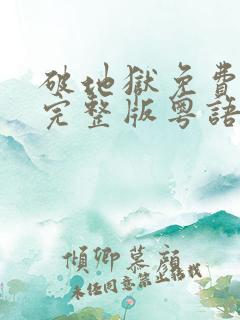 破地獄免費
完整版粵語
傾卿慕顏
未任同意禁止轉載